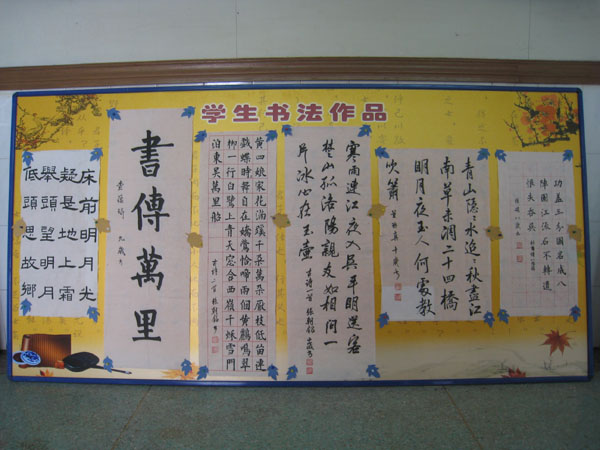 学生书法作品
床前明月光
疑是地上霜
舉頭望明月
低頭思故鄉
書傳萬里
黄四娘家花滿蹊千朵萬朵壓枝低留連
戲蝶時舞自在嬌鶯恰啼兩個黄鸝鳴翠
柳一行白鷺上青天窗含西嶺千秋雪門
泊東吴萬里船
寒雨連江夜入吴平明送客
楚山孤洛陽親友如相問一
片冰心在玉壺
青山隱々水迢々秋盡江
南草未凋二十四橋
明月夜玉人何處教
吹簫
功蓋三分國名成八
陣圖江流石不轉遺
恨失吞吴